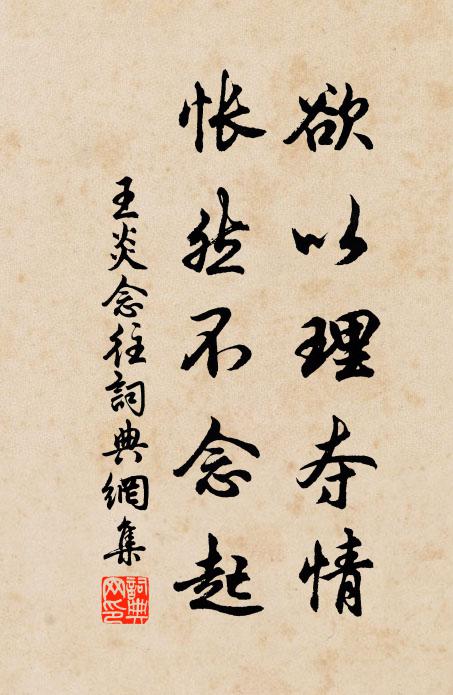 欲以理夺情
怅然不念起
王炎念往詞典網集
詞典
网印